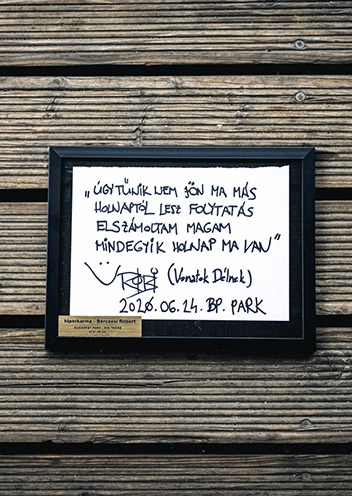 „ÚGY TŰNIK NEM JÖN MA MÁS
HOLNAPTÓL LESZ FOLYTATÁS
ELSZÁMOLTAM MAGAM
MINDEGYIK HOLNAP MA VAN"
ROBI (Vonatok Délnek)
2020.06.24. BP. PARK
hiperkarma - Bérczesi Róbert
BUDAPEST PARK